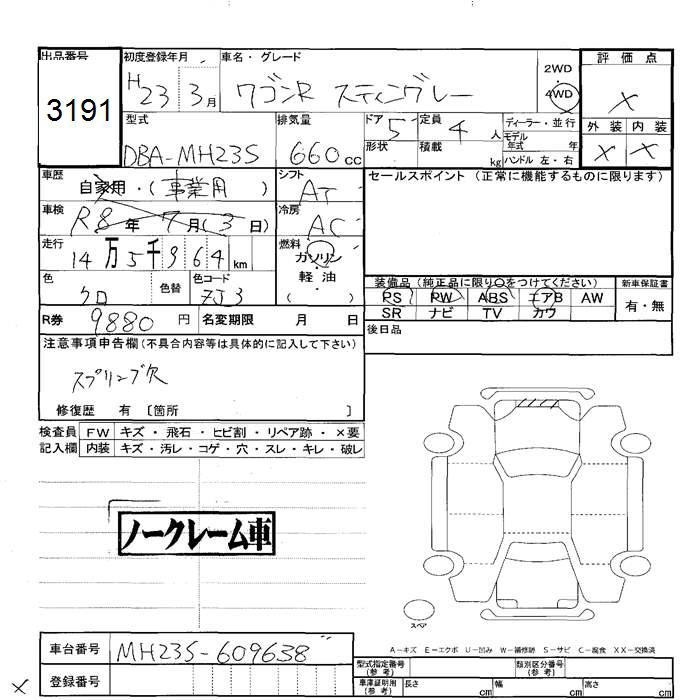 出品番号 初度登録年月 車名・グレード 2WD 評価点
3191 H23 3月 ワゴンR スティングレー 4WD ×
型式 排気量 ドア 定員 ディーラー・並行 外装 内装
DBA-MH23S 660cc 5 4人 モデル年式 年 × ×
形状 積載 kg ハンドル 左・右
車歴 自家用・(事業用) シフト AT セールスポイント(正常に機能するものに限ります)
車検 R8年7月(3日) 冷房 AC
走行 14万5千964km 燃料 ガソリン・軽・油( )
色 クロ 色替 色コード ZJ3
装備品(純正品に限り○をつけてください) 新車保証書
PS PW ABS エアB AW 有・無
SR ナビ TV カワ
R券 9880円 名変期限 月 日 後日品
注意事項申告欄(不具合内容等は具体的に記入して下さい)
スプリング欠
修復歴 有 〔箇所 〕
検査員 FW キズ・飛石・ヒビ割・リペア跡・×要
記入欄 内装 キズ・汚レ・コゲ・穴・スレ・キレ・破レ
ノークレーム車
スペア
A-キズ E-エクボ U-凹み W-補修跡 S-サビ C-腐食 XX-交換済
車台番号 MH23S-609638
型式指定番号(参考) 類別区分番号(参考)
× 登録番号 車庫証明用(参考) 長さ cm 幅 cm 高さ cm